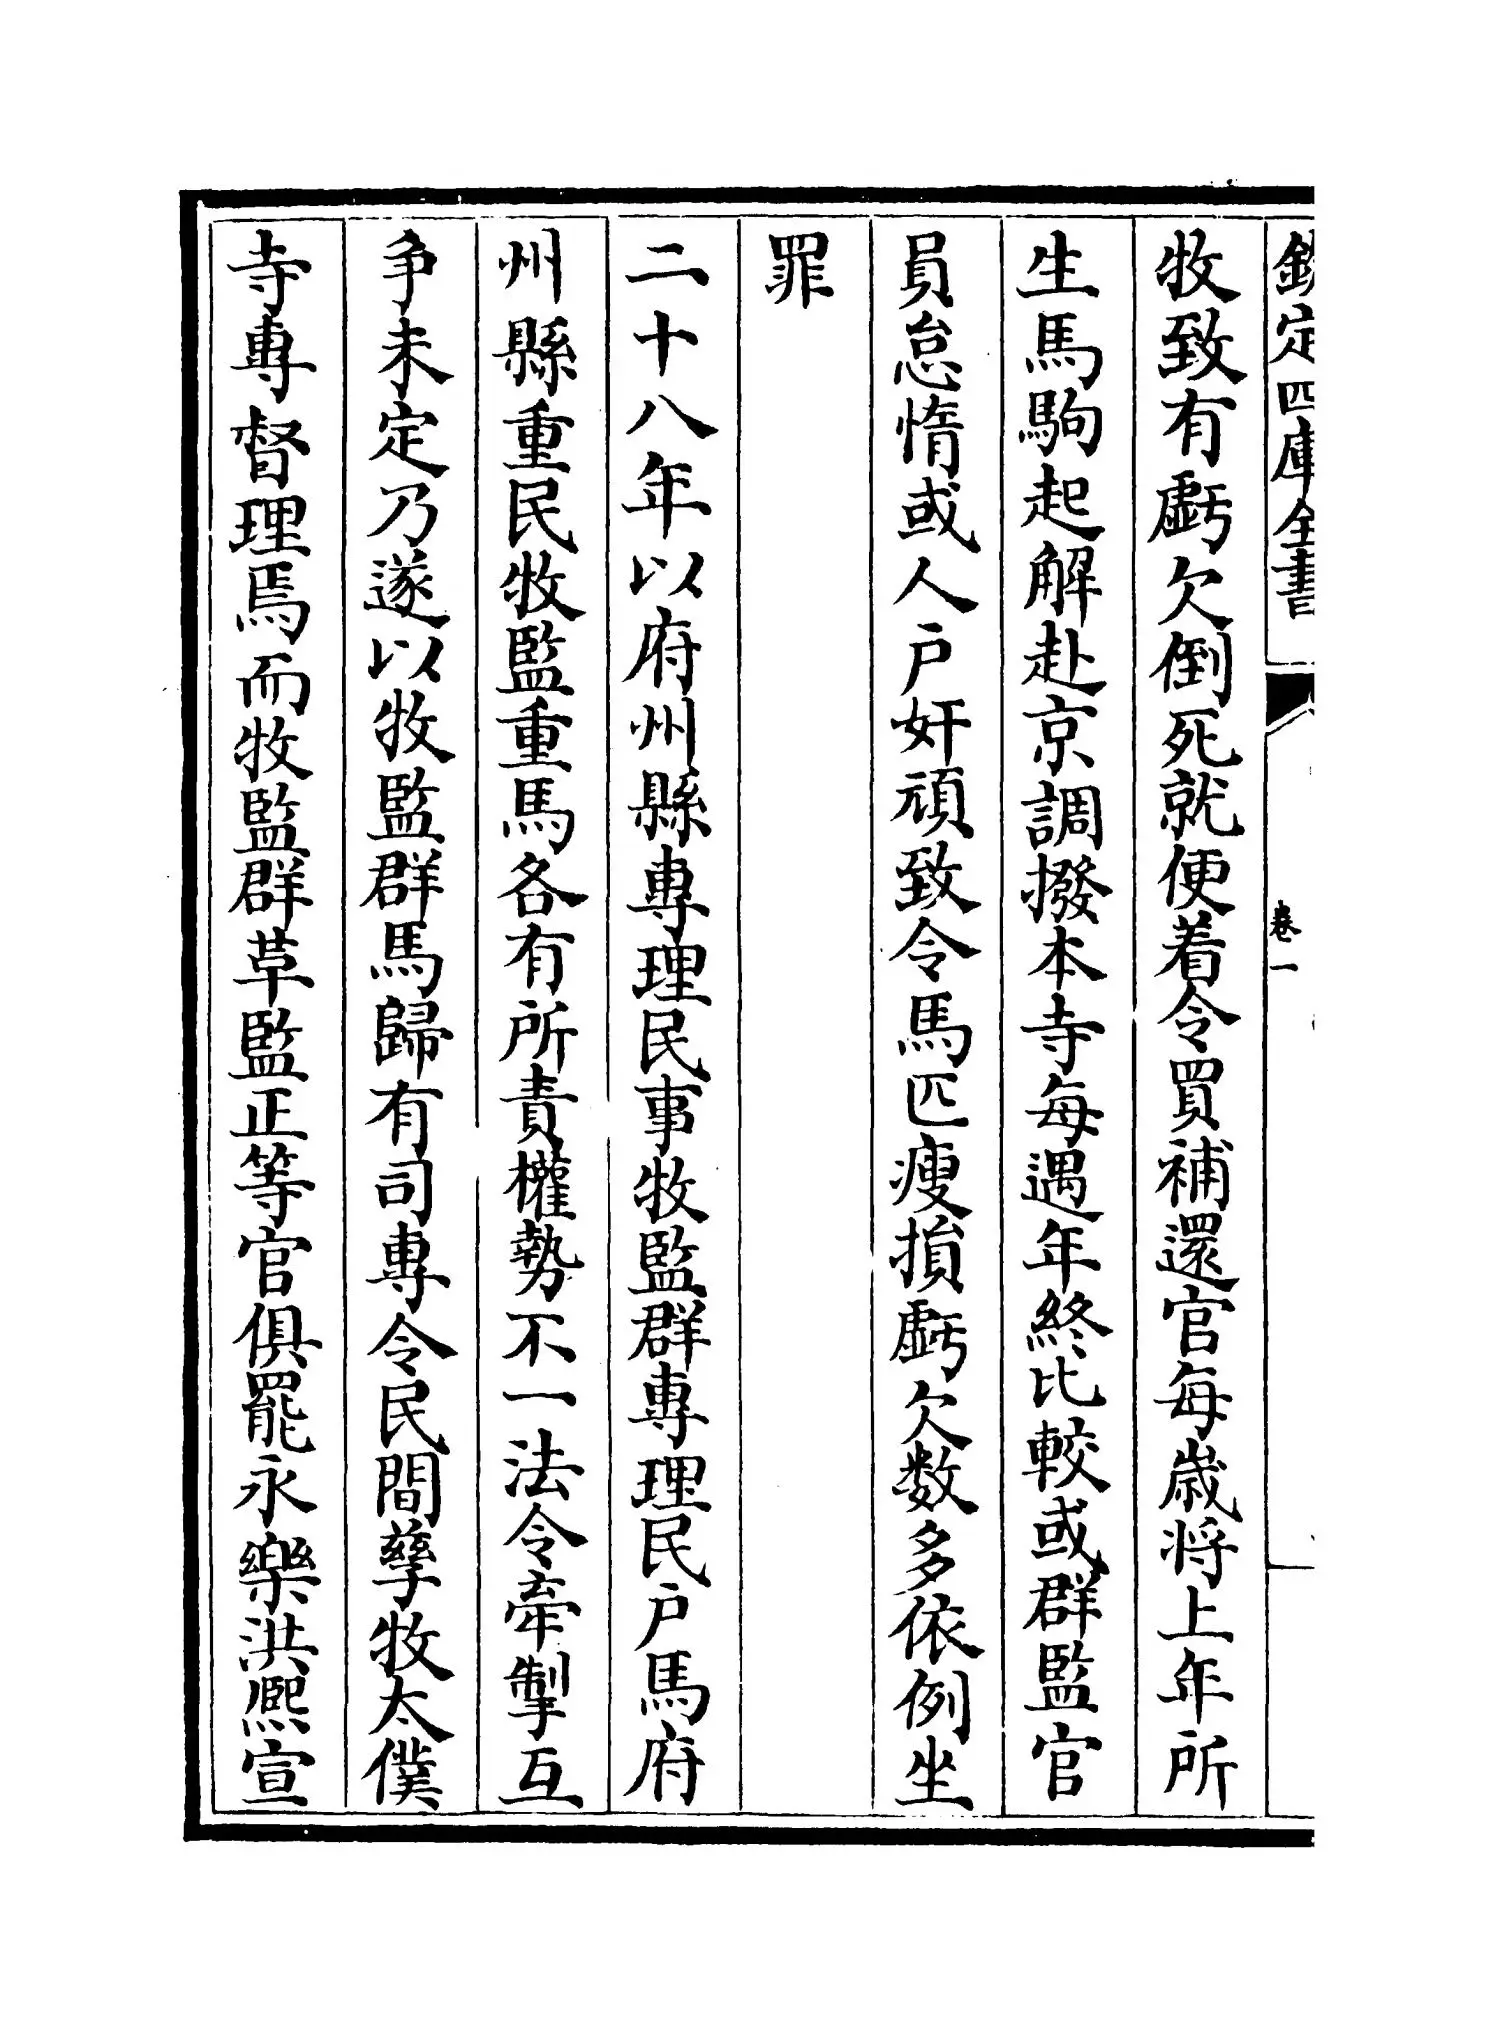 欽定四庫全書
卷一
牧致有虧欠倒死就便着令買補還官每歲将上年所
生馬駒起解赴京調撥本寺每遇年終比較或群監官
員怠惰或人户奸頑致令馬匹瘦損虧欠数多依例坐
罪
二十八年以府州縣專理民事牧監群專理民户馬府
州縣重民牧監重馬各有所責權勢不一法令牽掣互
争未定乃遂以牧監群馬歸有司專令民間孳牧太僕
寺專督理焉而牧監群草監正等官俱罷永樂洪熈宣